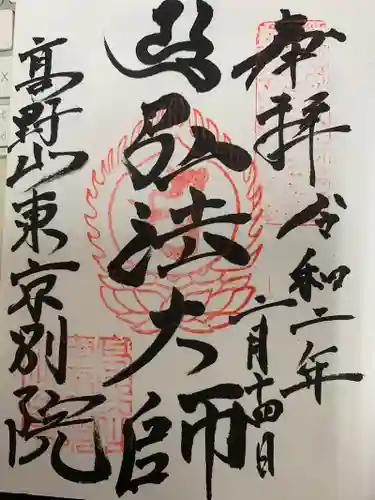 奉拝
令和二年
二月十四日
弘法大師
髙野山東京別院